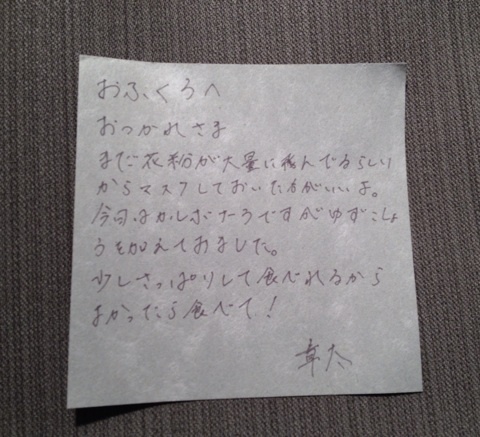 おふくろへ
おつかれさま
まだ花粉が大量に飛んでるらしい
からマスクしておいた方がいいよ。
今回はかしわ ですがゆずこしょ
うを加えてみました。
少しさっぱりして食べれるから
よかったら食べて!
章太